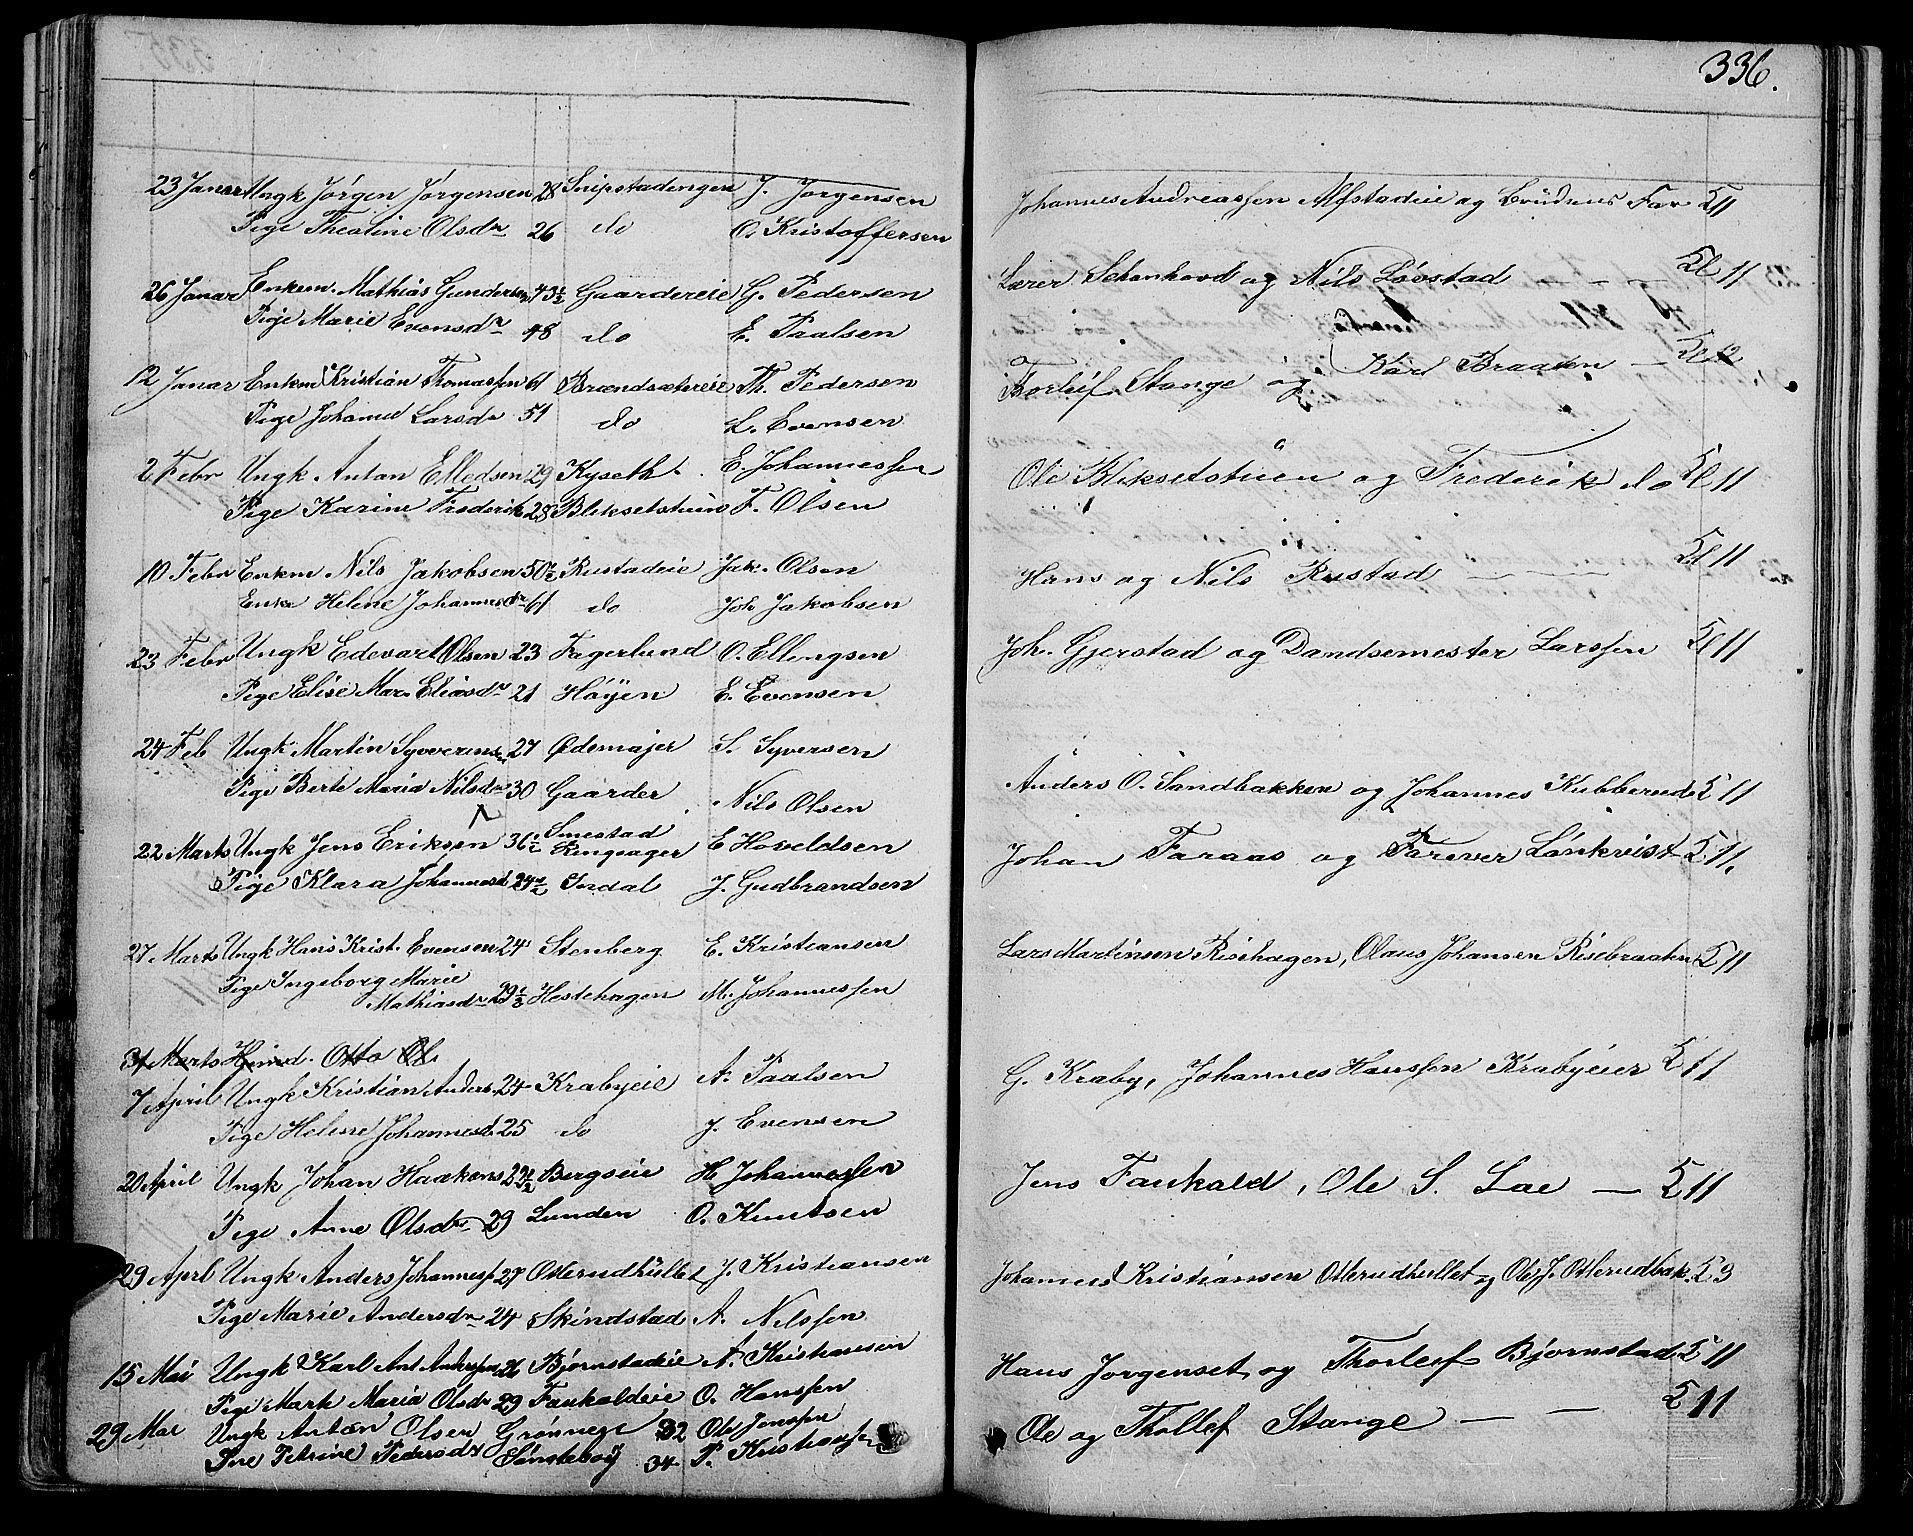 336.
23 Janar Ungk Jørgen Jørgensen 28 Snipstadengen J. Jørgensen
Johannes Andreassen Alfstadeie og Brudens Far Kl 11
Pige Theoline Olsdr 26 do O. Kristoffersen
26 Janar Enkem. Mathias Gundersen 43½ Gaardereie G. Pedersen
Lærer Schanhovd og Nils Løvstad — — Kl 11
Pige Marie Evensdr 48 do E. Paalsen
12 Janar Enkem Kristian Thomassen 61 Brændsætereie Th. Pedersen
Torleif Stange og Karl Braaten — Kl 12
Pige Johanne Larsdr 51 do L. Evensen
2 Febr Ungk Anton Elledsen 29 Kyseth E. Johannessen
Ole Bliksetstuen og Frederik do Kl 11
Pige Karine Frederik 28 Bliksetstuen F. Olsen
10 Febr Enkm Nils Jakobsen 50½ Rustadeie Jak. Olsen
Hans og Nils Rustad — — Kl 11
Enke Helene Johannesdr 61 do Joh Jakobsen
23 Febr Ungk Edevart Olsen 23 Fagerlund O. Ellengsen
Joh. Gjerstad og Dandsemester Larssen Kl 11
Pige Elise Mar. Eliasdr 21 Høyen E. Evensen
24 Feb Ungk Martin Syverins 27 Ødemajer S. Syversen
Pige Berte Maria Nilsdr 30 Gaarder Nils Olsen
Anders O. Sandbakken og Johannes Kubberud K 11
22 Marts Ungk Jens Eriksen 36½ Smestad Ringsager E Hoveldsen
Johan Faraas og Farever Lønkvist K 11.
Pige Klara Johannesd 24½ Indal J. Gudbrandsen
27 Marts Ungk Hans Krist. Evensen 24 Stenberg E. Kristiansen
Lars Martinsen Risehagen, Olaus Johansen Risebraaten K 11
Pige Ingeborg Marie
Mathiasdr 29½ Hestehagen M. Johannessen
31 Marts Otto Ol.
7 April Ungk Kristian Anders. 24 Krabyeie A. Paalsen
G. Kraby, Johannes Hanssen Krabyeier K 11
Pige Helene Johannesd. 25 do J. Evensen
20 April Ungk Johan Haakens 22½ Bergseie H Johannessen
Jens Faukald, Ole S. Lae — K 11
Pige Anne Olsdr 29 Lunden O. Knutsen
29 Aprl Ungk Anders Johanness 27 Otterudhullet J. Kristiansen
Johannes Kristiansen Otterudhullet og Ole J. Otterudbak. K 9
Pige Marie Andersdr 24 Skindstad A. Nilssen
15 Mai Ungk Karl Ant Anderssen 26 Bjørnstadeie A. Kristiansen
Hans Jørgenset og Thorleif Bjørnstad K 11
Pige Marte Maria Olsdr 29 Faukaldeie O. Hanssen
29 Mai Ungk Anton Olsen Grønnege 32 Ole Jenssen
Ole og Thollef Stange — — K 11
Pie Petrine Pedersdr Sønsteby 34 P. Kristianssen